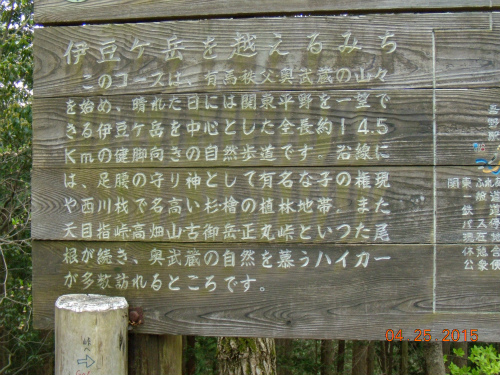 伊豆ヶ岳を越えるみち
このコースは、有高秩父奥武蔵の山々
を始め、晴れた日には関東平野を一望で
きる伊豆ヶ岳を中心とした全長約14.5
Kmの健脚向きの自然歩道です 沿線に
は、足腰の守り神として有名な子の権現
や西川材で名高い杉檜の植林地帯、また
天目指峠高畑山古御岳正丸峠といつた尾
根が続き、奥武蔵の自然を慕うハイカー
が多数訪れるところです。
関東ふれ
一般道
鉄道
バス
休憩
公衆便
04 25 2015